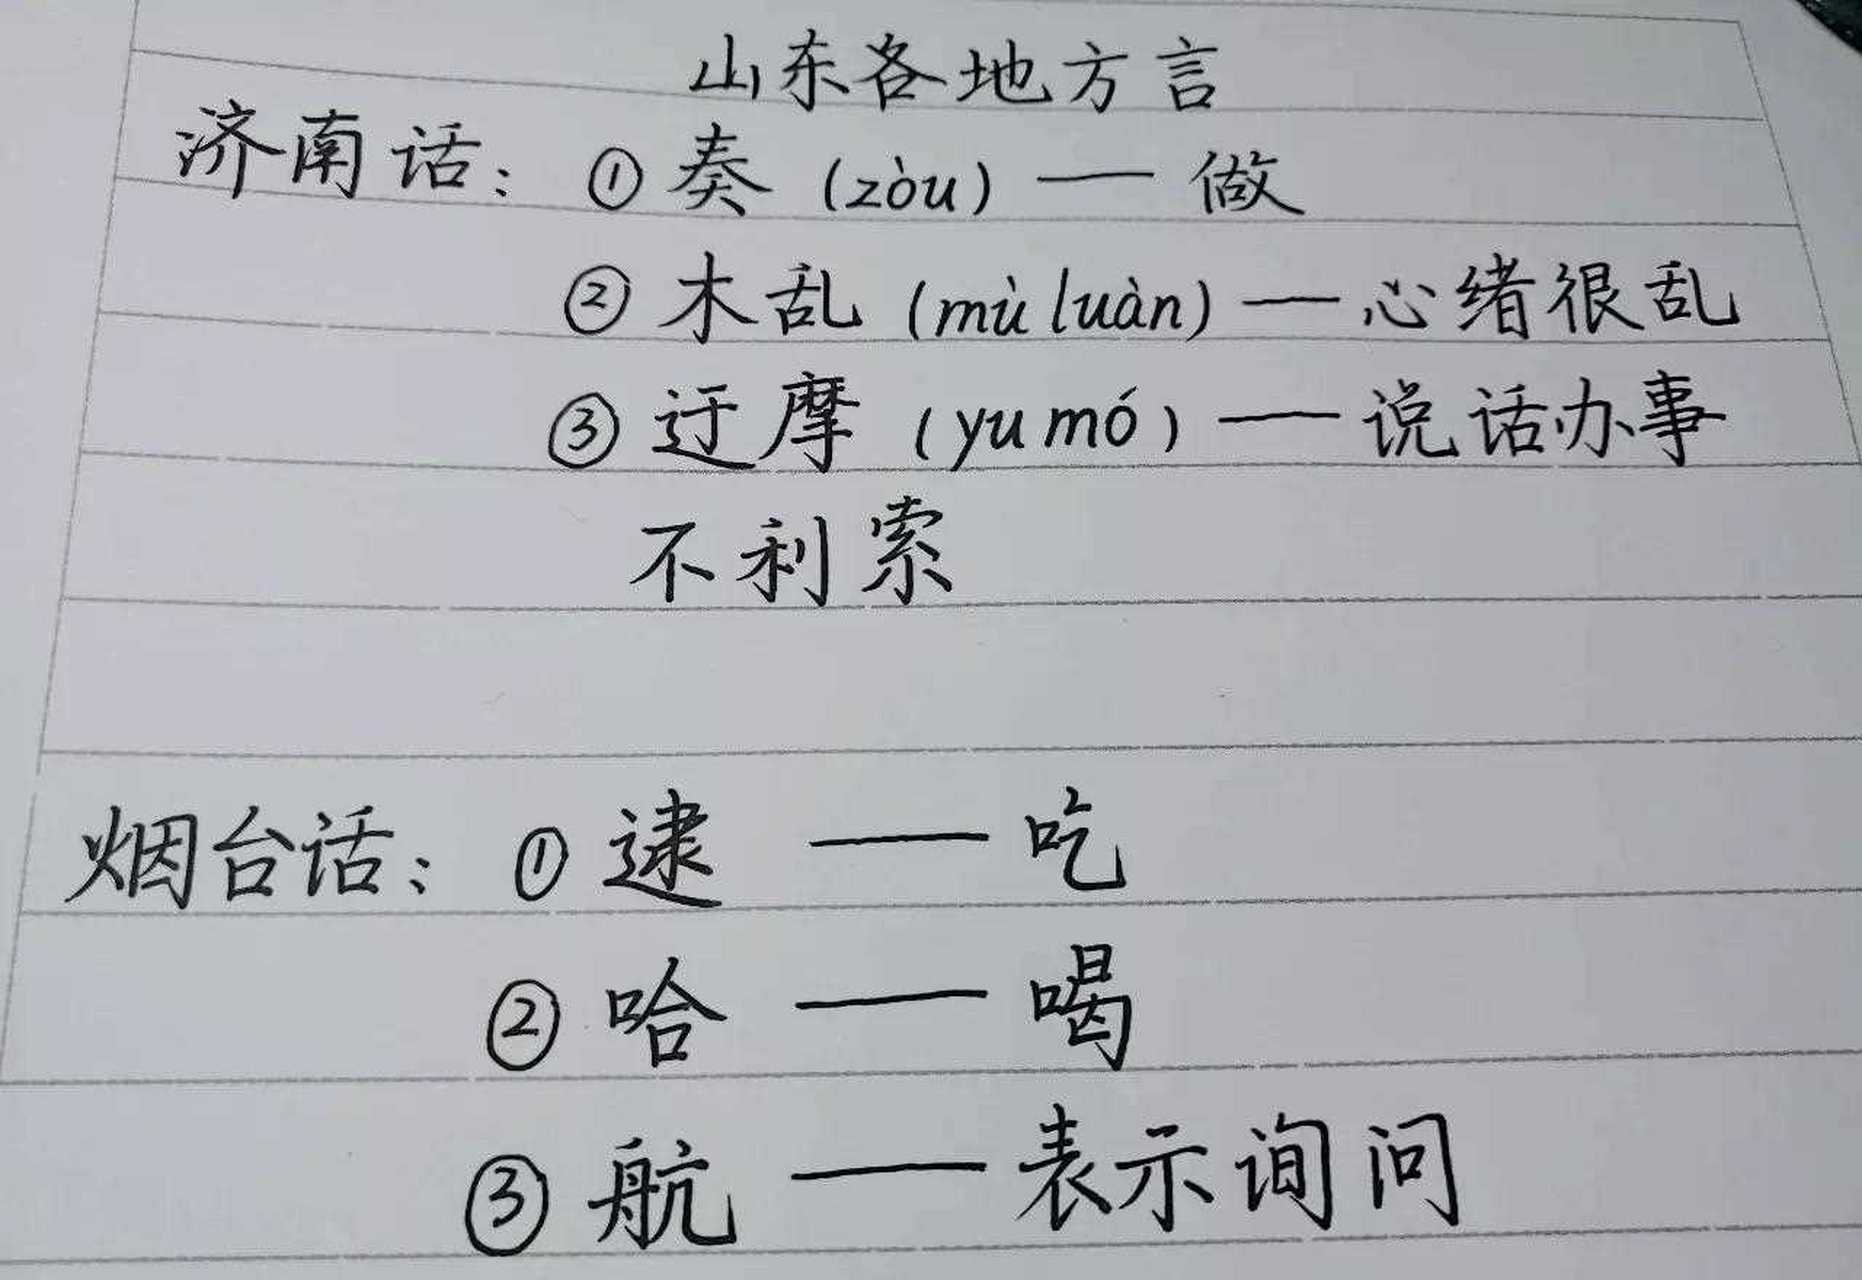 山东各地方言
济南话：①奏（zòu）——做
②木乱（mù luàn）——心绪很乱
③迂摩（yu mó）——说话办事
不利索
烟台话：①逮——吃
②哈——喝
③航——表示询问